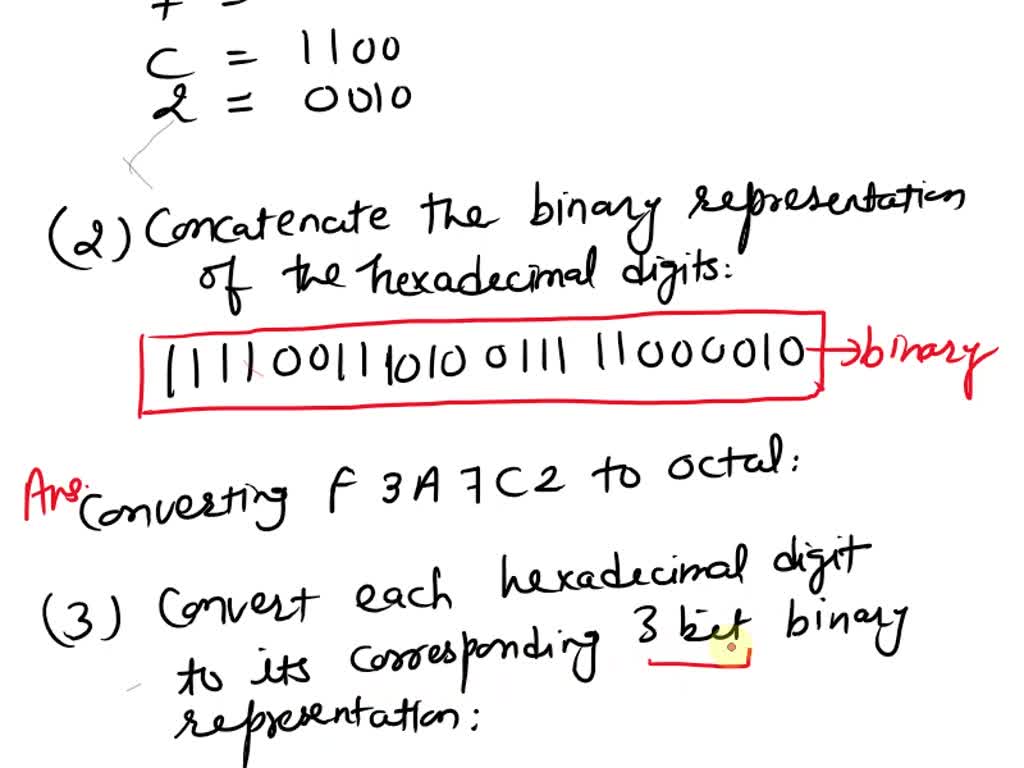 C = 1100
2 = 0010
(2) Concatenate the binary representation
of the hexadecimal digits:
111100111010 0111 11000010 → binary
Ans: Converting F3A7C2 to octal:
(3) Convert each hexadecimal digit
to its corresponding 3 bit binary
representation: